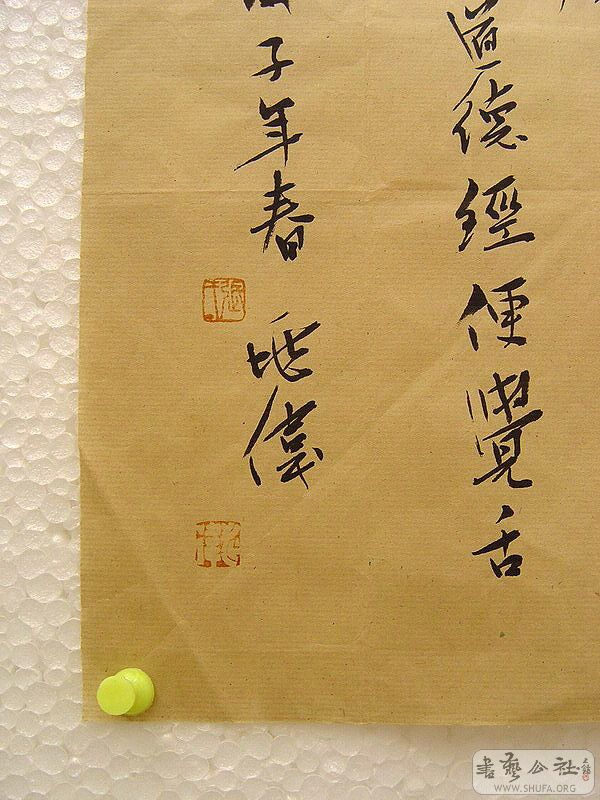 道德經便覺舌
子年春
偉
書藝公社
WWW.SHUFA.ORG